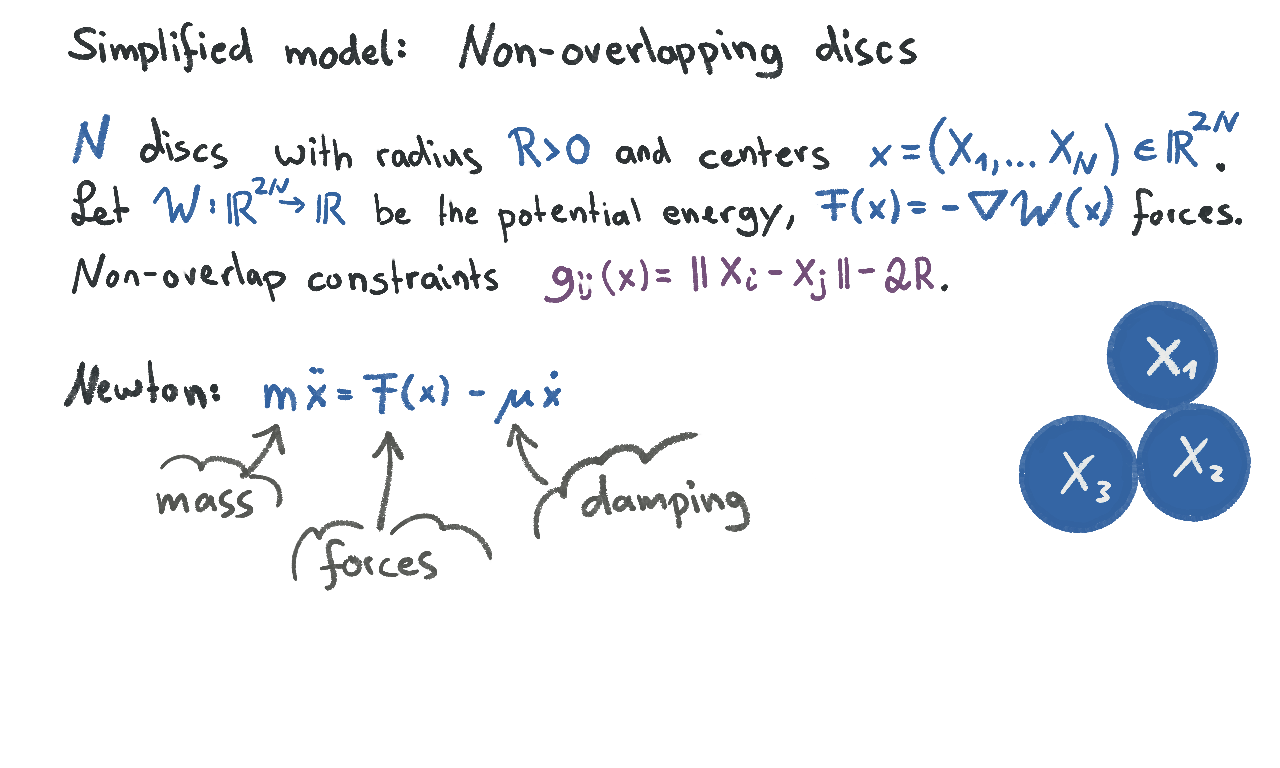 Simplified model: Non-overlapping discs
N discs with radius R>0 and centers x=(X₁,... X_N) ∈ ℝ²ᴺ.
Let W:ℝ²ᴺ→ℝ be the potential energy, F(x)=-∇W(x) forces.
Non-overlap constraints g_ij(x)=‖X_i-X_j‖-2R.
Newton: mẍ=F(x)-μẋ
mass
forces
damping
X₁
X₂
X₃